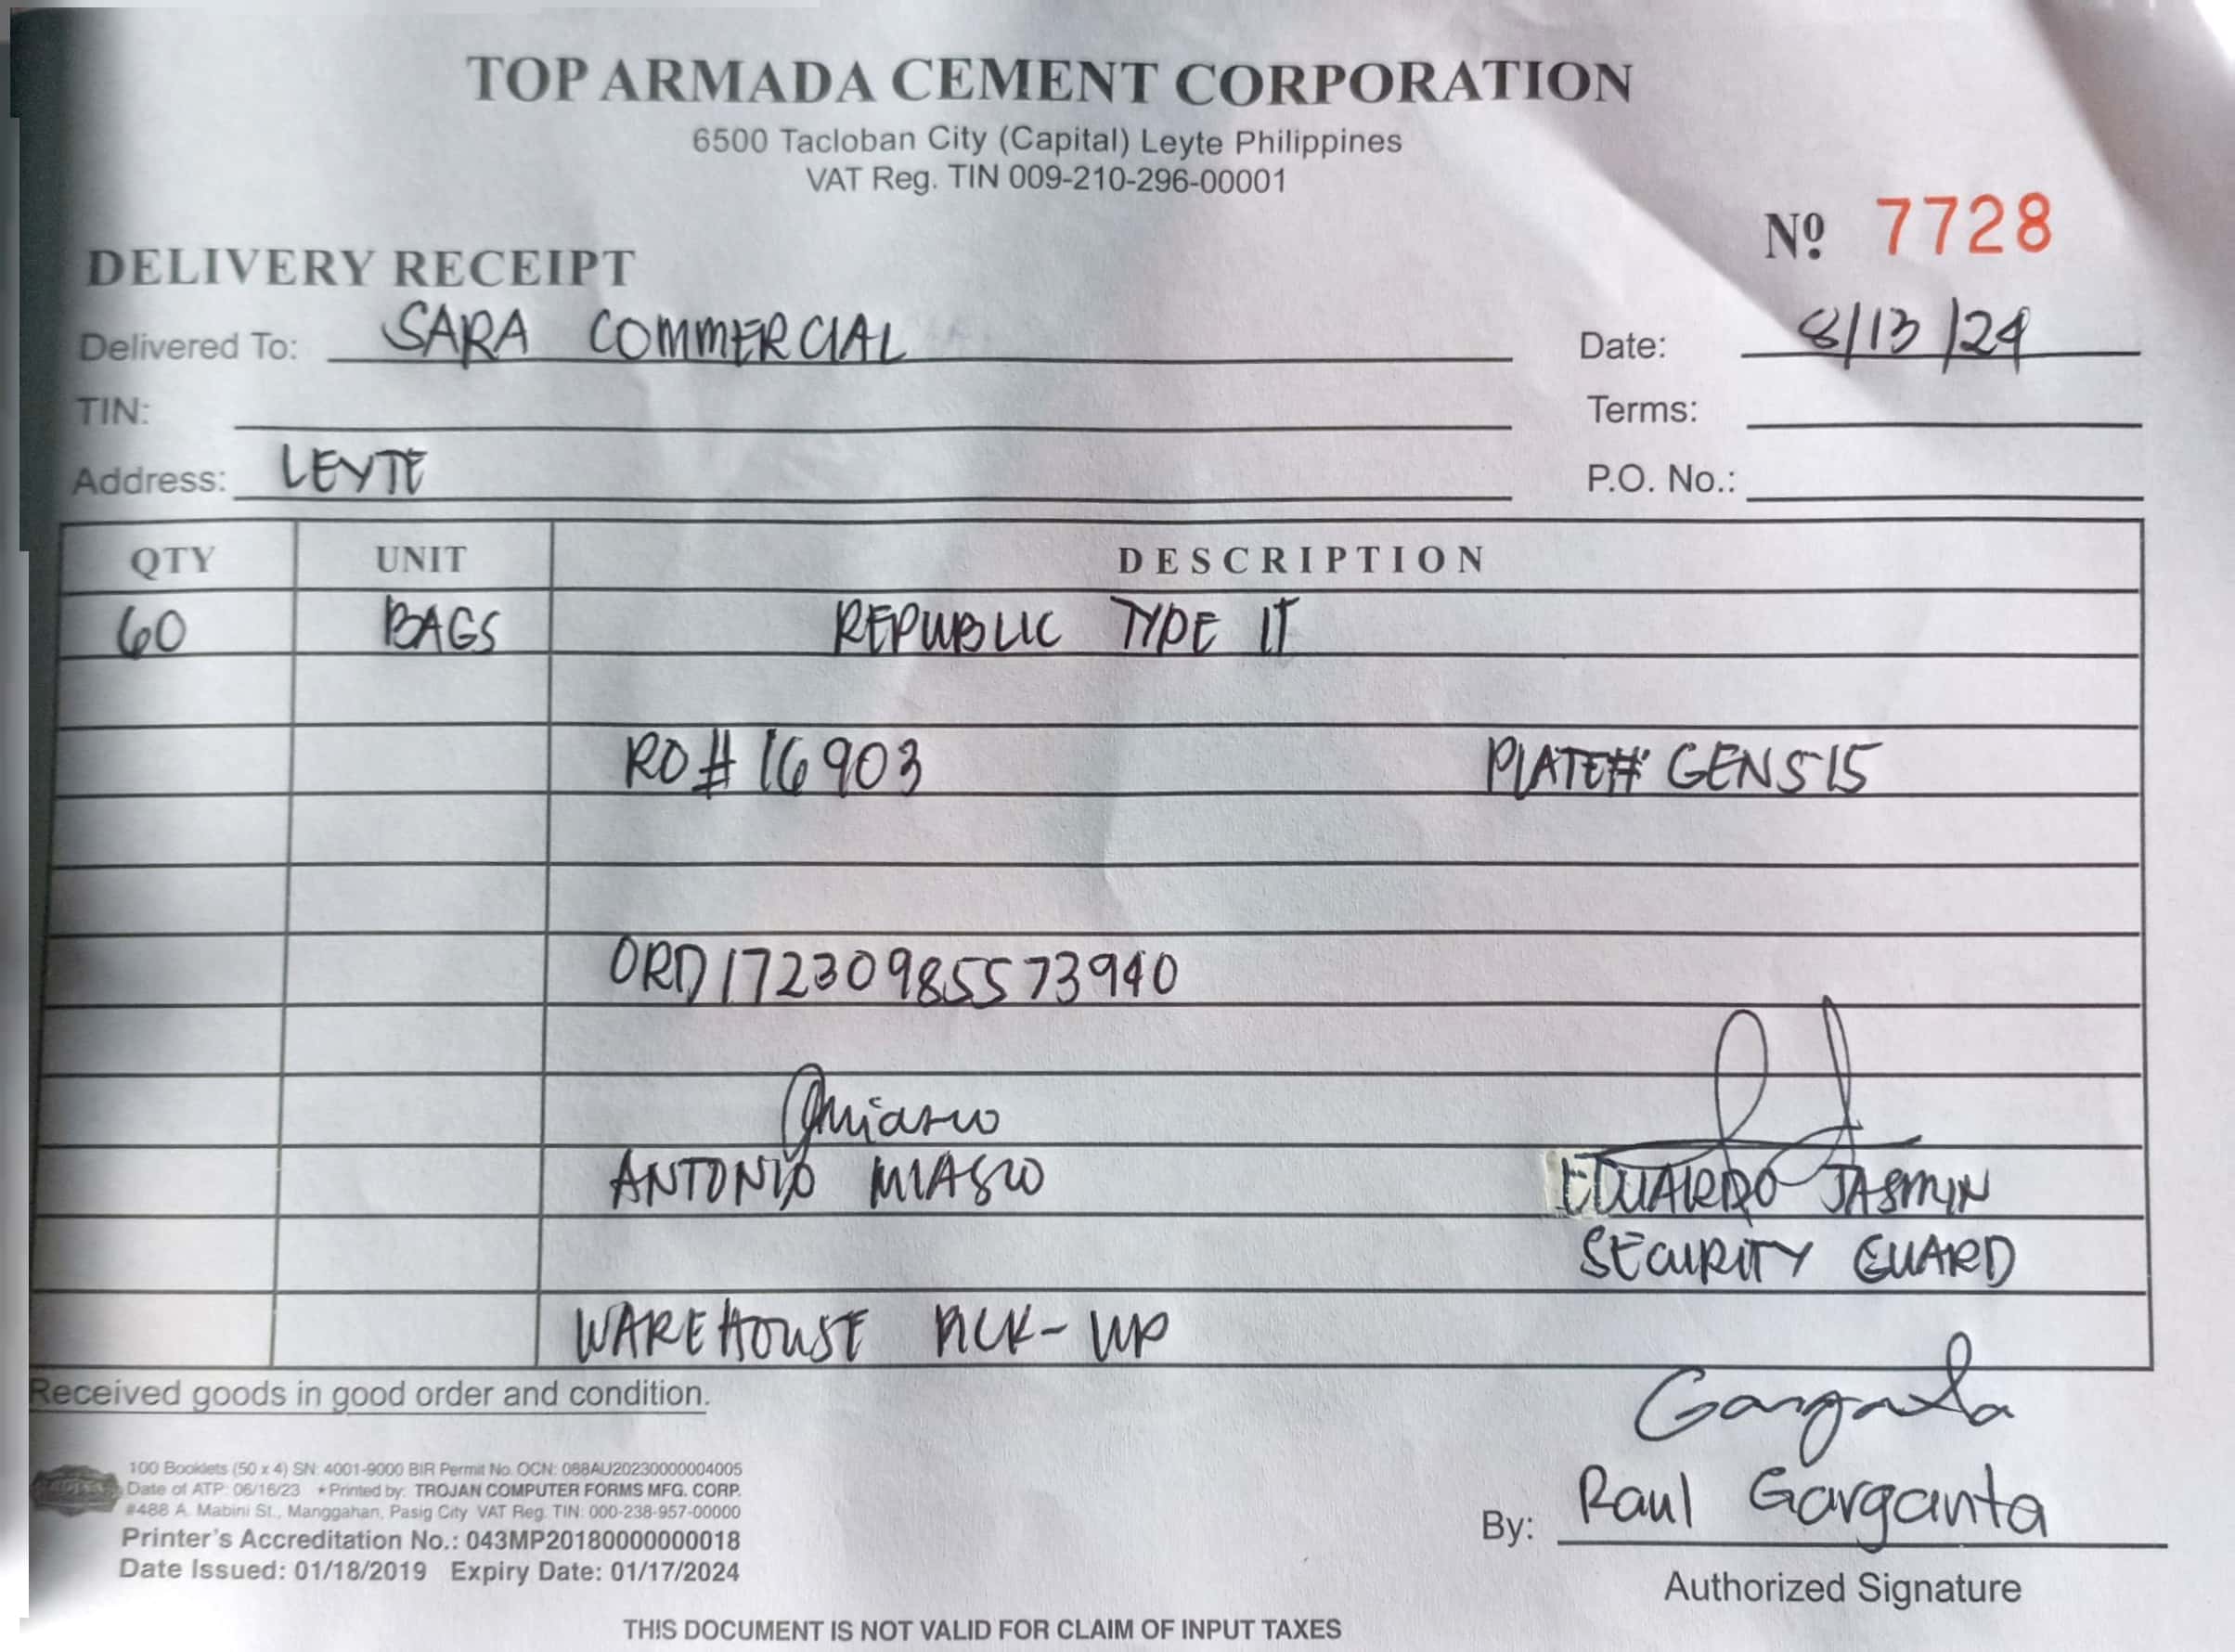 TOP ARMADA CEMENT CORPORATION
6500 Tacloban City (Capital) Leyte Philippines
VAT Reg. TIN 009-210-296-00001
Nº 7728
DELIVERY RECEIPT
Delivered To: SARA COMMERCIAL
Date: 8/13/24
TIN:
Terms:
Address: LEYTE
P.O. No.:
QTY UNIT DESCRIPTION
60 BAGS REPUBLIC TYPE IT
RO# 16903 PLATE# GEN515
ORD17230985573940
ANTONIO MIASCO EDUARDO JASMIN
SECURITY GUARD
WAREHOUSE PICK-UP
Received goods in good order and condition.
Garganta
100 Booklets (50 x 4) SN: 4001-9000 BIR Permit No. OCN: 088AU20230000004005
Date of ATP: 06/16/23 * Printed by: TROJAN COMPUTER FORMS MFG. CORP.
#488 A. Mabini St., Manggahan, Pasig City VAT Reg. TIN: 000-238-957-00000
Printer's Accreditation No.: 043MP20180000000018
Date Issued: 01/18/2019 Expiry Date: 01/17/2024
By: Raul Garganta
Authorized Signature
THIS DOCUMENT IS NOT VALID FOR CLAIM OF INPUT TAXES